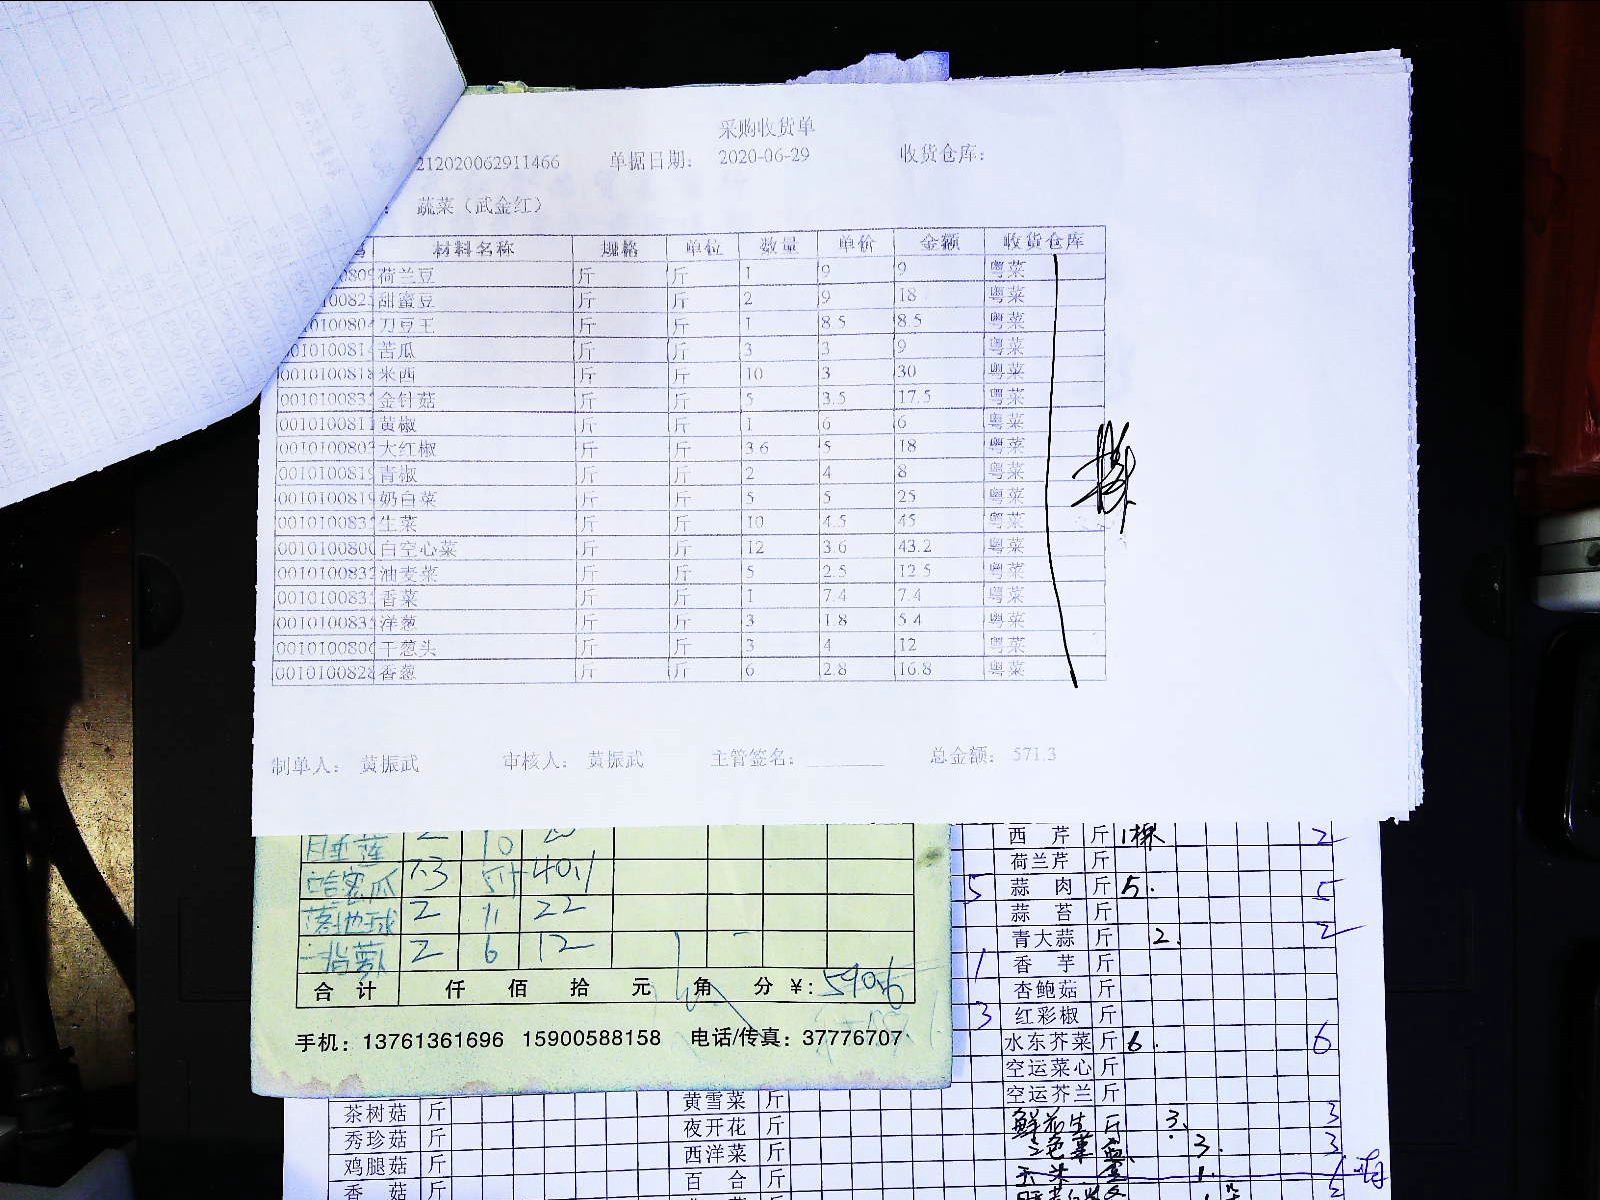 采购收货单
212020062911466 单据日期: 2020-06-29 收货仓库:
: 蔬菜（武金红）
材料名称 规格 单位 数量 单价 金额 收货仓库
荷兰豆 斤 斤 1 9 9 粤菜
甜蜜豆 斤 斤 2 9 18 粤菜
刀豆王 斤 斤 1 8.5 8.5 粤菜
苦瓜 斤 斤 3 3 9 粤菜
0010100818 米西 斤 斤 10 3 30 粤菜
金针菇 斤 斤 5 3.5 17.5 粤菜
黄椒 斤 斤 1 6 6 粤菜
大红椒 斤 斤 3.6 5 18 粤菜
青椒 斤 斤 2 4 8 粤菜
奶白菜 斤 斤 5 5 25 粤菜
生菜 斤 斤 10 4.5 45 粤菜
白空心菜 斤 斤 12 3.6 43.2 粤菜
油麦菜 斤 斤 5 2.5 12.5 粤菜
香菜 斤 斤 1 7.4 7.4 粤菜
洋葱 斤 斤 3 1.8 5.4 粤菜
干葱头 斤 斤 3 4 12 粤菜
0010100828 香葱 斤 斤 6 2.8 16.8 粤菜
制单人: 黄振武 审核人: 黄振武 主管签名: 总金额: 571.3
2 10 20
哈密瓜 7.3
落地球 2 11 22
2 6 12
合计 仟 佰 拾 元 角 分 ¥: 590.6
手机: 13761361696 15900588158 电话/传真: 37776707
西芹 斤 1棵 2
荷兰芹 斤
5 蒜肉 斤 5. 5
蒜苔 斤
青大蒜 斤 2. 2
1 香芋 斤
杏鲍菇 斤
3 红彩椒 斤
水东芥菜 斤 6. 6
空运菜心 斤
空运芥兰 斤
鲜花生 斤 3. 3
3. 3
1.
茶树菇 斤 黄雪菜 斤
秀珍菇 斤 夜开花 斤
鸡腿菇 斤 西洋菜 斤
香菇 斤 百合 斤